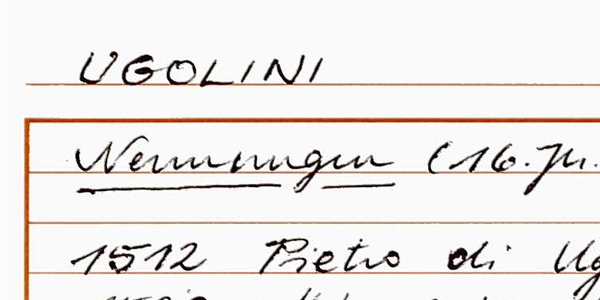 UGOLINI
Nennungen (16. Jh.
1512 Pietro di Ug